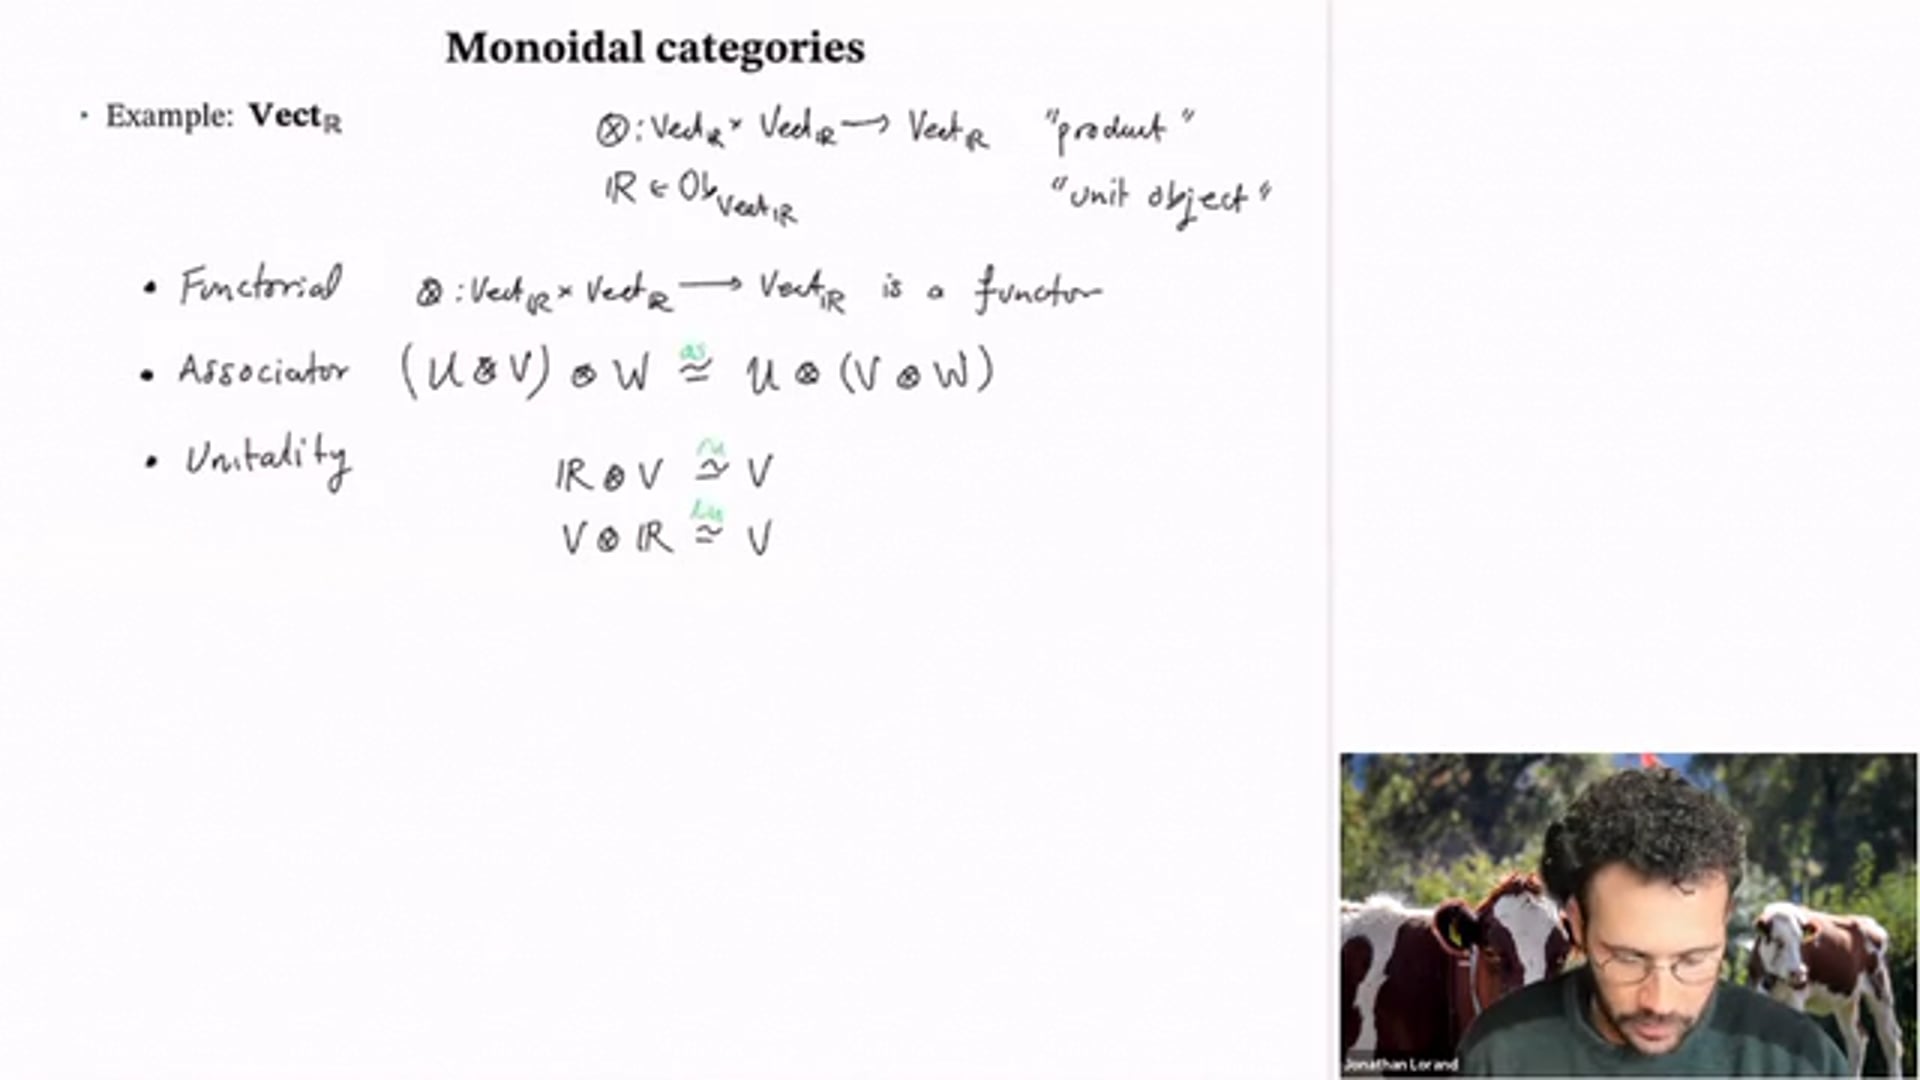 Monoidal categories
· Example: Vect_ℝ ⊗ : Vect_ℝ × Vect_ℝ ⟶ Vect_ℝ "product"
ℝ ∈ Ob_Vect_ℝ "unit object"
• Functorial ⊗ : Vect_ℝ × Vect_ℝ ⟶ Vect_ℝ is a functor
• Associator (U ⊗ V) ⊗ W ≅ U ⊗ (V ⊗ W)
as
• Unitality ℝ ⊗ V ≅ V
ru
V ⊗ ℝ ≅ V
lu
Jonathan Lorand